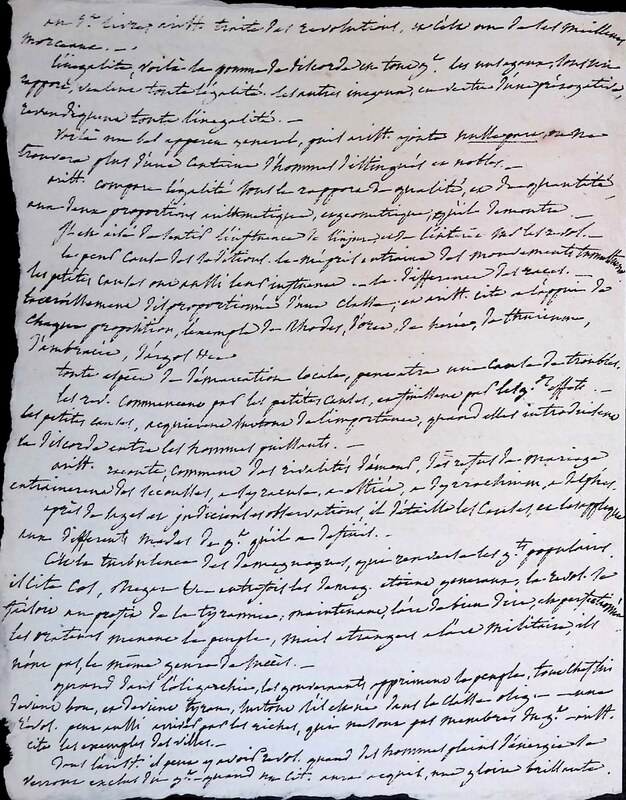 au 8e. livre, arist. traite des revolutions, et c'est un de ses meilleurs
morceaux. —.
l'inegalité, voilà la pomme de discorde en tout gt. les uns egaux, sous un
rapport, veulent toute l'égalité. les autres inegaux, en vertu d'une prérogative,
revendiquent toute l'inegalité. —
voilà un bel apperçu general, puis arist. ajoute nulle part, on ne
trouvera plus d'une centaine d'hommes distingués et nobles. —
arist. compare l'égalité sous le rapport de qualité, et de quantité,
aux deux proportions arithmetique, et geometrique, qu'il demontre. —
de l'influence de l'injure, et de l'intérêt sur les revol.
la peur cause des séditions. le mépris entraine des mouvements tumultueux
les petites causes ont aussi leur influence — la difference des races. —
l'accroissement disproportionné d'une classe, et arist. cite a l'appui de
chaque proposition, l'exemple de Rhodes, d'orée, de heréa, de thurium,
d'ambracie, d'argos &ca
toute espèce de démarcation locale, peut etre une cause de troubles.
les rev. commencent par les petites causes, et finissent par les gds. effets. —
les petites causes, acquierent surtout de l'importance, quand elles introduisent
la discorde entre les hommes puissants. —
arist. raconte comment des rivalités d'amour, des refus de mariage
entrainerent des secousses, a Syracuse, a estiée, a Dyrrachium, a delphes.
après de sages et judicieuses observations, il détaille les causes, et les applique
aux differents modes de gt. qu'il a definis. —
C'est la turbulence des demagogues, qui renversa les gts. populaires
il cite Cos, Megare &c autrefois les demag. etoient generaux, la revol. se
faisoit au profit de la tyrannie, maintenant, l'art de bien dire, est perfectionné
les orateurs menent le peuple, mais etrangers a l'art militaire, ils
n'ont pas, le même genre de succès. —
quand dans l'oligarchie, les gouvernants oppriment le peuple, tout chef lui
devient bon, et devient tyran, surtout s'il etoit dans la classe olig. — une
révol. peut aussi arriver par les riches, qui ne sont pas membres du gt. — arist.
cite les exemples des villes. —
dans l'arist. il peut y avoir revol. quand des hommes pleins d'énergie se
verront exclus du gt. — quand un cit. aura acquis, une gloire brillante.